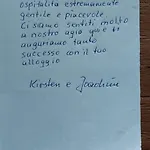 ospitalità estremamente
gentile e piacevole
Ci siamo sentiti molto
a nostro agio qua e ti
auguriamo tanto
successo con il tuo
alloggio
Kirsten e Joachim